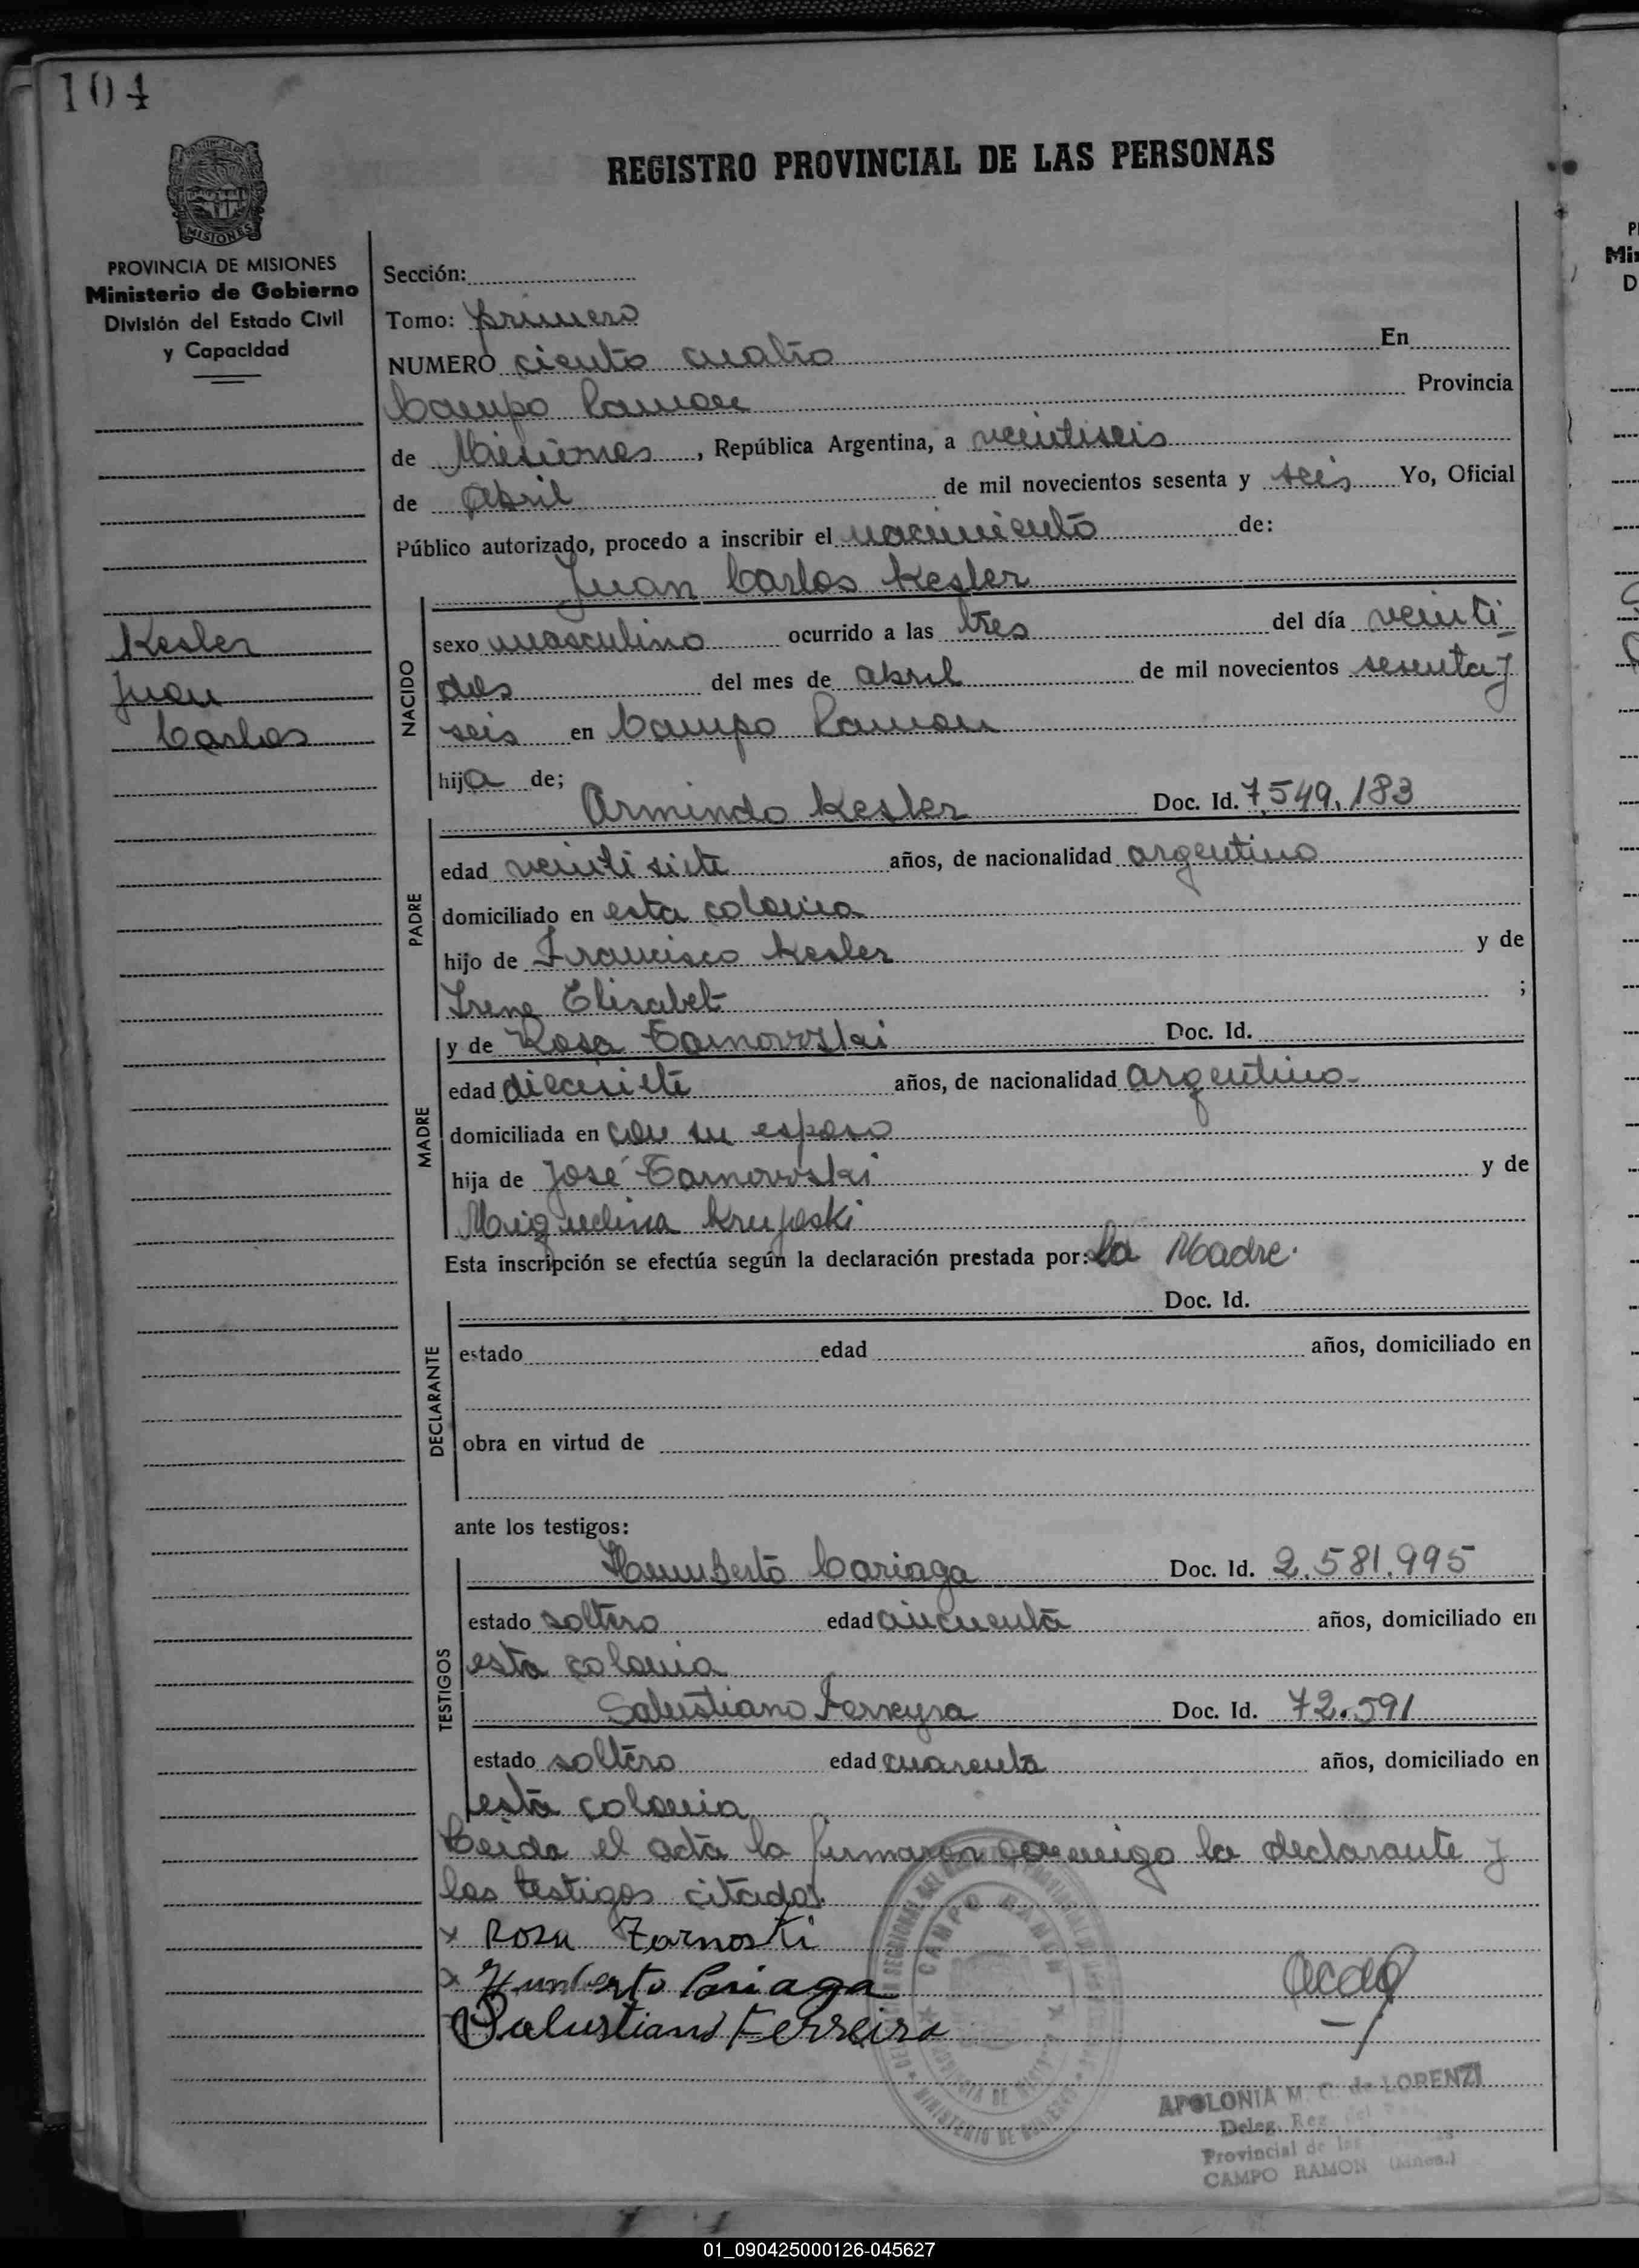 104
MISIONES
REGISTRO PROVINCIAL DE LAS PERSONAS
PROVINCIA DE MISIONES
Ministerio de Gobierno
División del Estado Civil
y Capacidad
Kesler
Juan
Carlos
Sección:
Tomo: primero
NUMERO ciento cuatro En
Campo Ramon Provincia
de Misiones, República Argentina, a veintiseis
de Abril de mil novecientos sesenta y seis Yo, Oficial
Público autorizado, procedo a inscribir el nacimiento de:
Juan Carlos Kesler
NACIDO
sexo masculino ocurrido a las tres del día veinti
dos del mes de abril de mil novecientos sesenta y
seis en Campo Ramon
hija de;
PADRE
Armindo Kesler Doc. Id. 7.549.183
edad veinti siete años, de nacionalidad argentino
domiciliado en esta colonia
hijo de Francisco Kesler y de
Irene Elisabet ;
MADRE
y de Rosa Tarnowski Doc. Id.
edad diecisiete años, de nacionalidad argentina
domiciliada en con su esposo
hija de José Tarnowski y de
Miguelina Krupski
Esta inscripción se efectúa según la declaración prestada por: La Madre.
DECLARANTE
Doc. Id.
estado edad años, domiciliado en
obra en virtud de
ante los testigos:
TESTIGOS
Humberto Cariaga Doc. Id. 2.581.995
estado soltero edad cincuenta años, domiciliado en
esta colonia
Salustiano Ferreyra Doc. Id. 72.591
estado soltero edad cuarenta años, domiciliado en
esta colonia
Leida el acta la firmaron conmigo la declarante y
los testigos citados.
x Rosa Zarnosti
x Humberto Cariaga
Salustiano Ferreira
CAMPO RAMON
MINISTERIO DE GOBIERNO
APOLONIA M. C. de LORENZI
Deleg. Reg. del
Provincial de las
CAMPO RAMON (Mnes.)
01_090425000126-045627